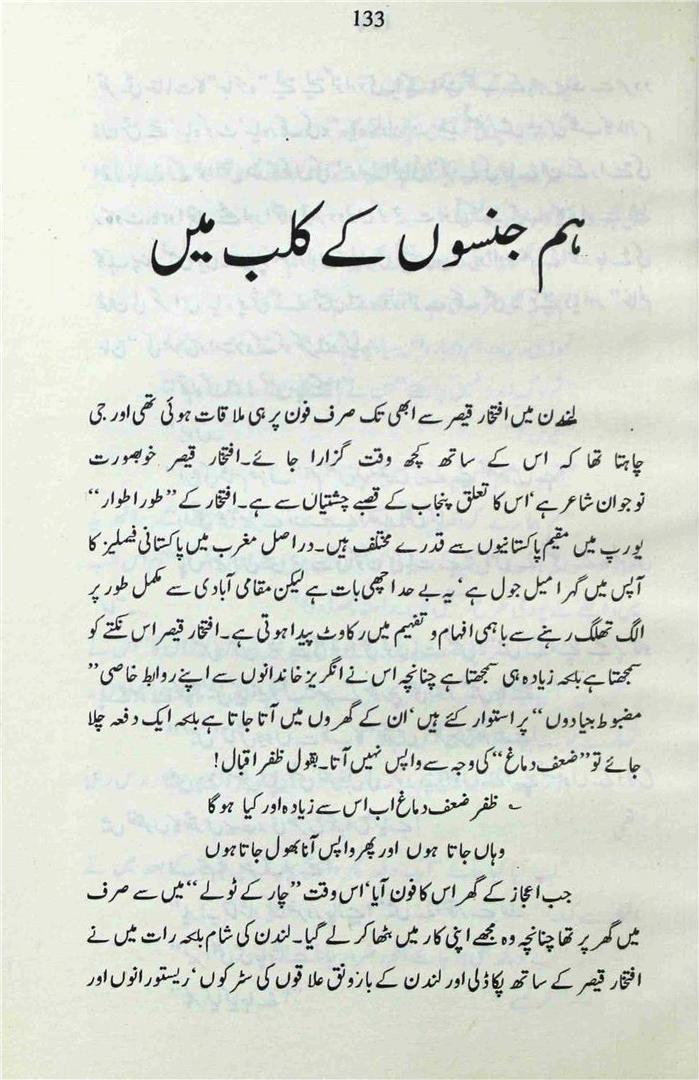 133
ہم جنسوں کے کلب میں
لندن میں افتخار قیصر سے ابھی تک صرف فون پر ہی ملاقات ہوئی تھی اور جی
چاہتا تھا کہ اس کے ساتھ کچھ وقت گزارا جائے۔ افتخار قیصر خوبصورت
نوجوان شاعر ہے‘ اس کا تعلق پنجاب کے قصبے چشتیاں سے ہے۔ افتخار کے ’’طور اطوار‘‘
یورپ میں مقیم پاکستانیوں سے قدرے مختلف ہیں۔ دراصل مغرب میں پاکستانی فیملیز کا
آپس میں گہرا میل جول ہے‘ یہ بے حد اچھی بات ہے لیکن مقامی آبادی سے مکمل طور پر
الگ تھلگ رہنے سے باہمی افہام و تفہیم میں رکاوٹ پیدا ہوتی ہے۔ افتخار قیصر اس نکتے کو
سمجھتا ہے بلکہ زیادہ ہی سمجھتا ہے چنانچہ اس نے انگریز خاندانوں سے اپنے روابط خاصی ’’
مضبوط بنیادوں‘‘ پر استوار کئے ہیں‘ ان کے گھروں میں آتا جاتا ہے بلکہ ایک دفعہ چلا
جائے تو ’’ضعف دماغ‘‘ کی وجہ سے واپس نہیں آتا۔ بقول ظفر اقبال!
؎ ظفر ضعف دماغ اب اس سے زیادہ اور کیا ہوگا
وہاں جاتا ہوں اور پھر واپس آنا بھول جاتا ہوں
جب اعجاز کے گھر اس کا فون آیا‘ اس وقت ’’چار کے ٹولے‘‘ میں سے صرف
میں گھر پر تھا چنانچہ وہ مجھے اپنی کار میں بٹھا کر لے گیا۔ لندن کی شام بلکہ رات میں نے
افتخار قیصر کے ساتھ پکاڈلی اور لندن کے بارونق علاقوں کی سڑکوں‘ ریستورانوں اور